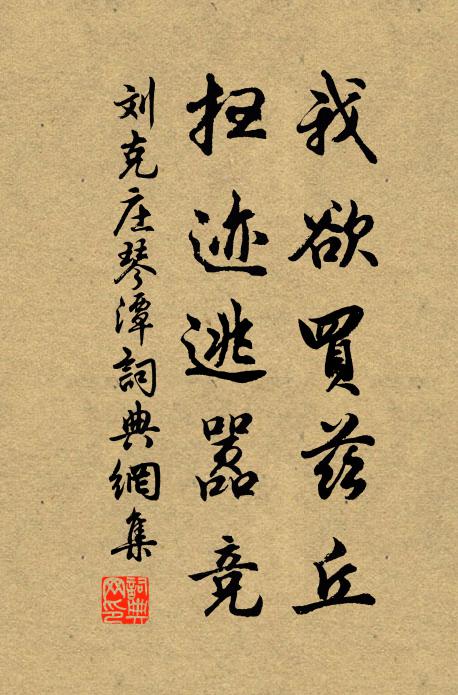 我欲買兹丘
扫迹逃嚣竞
刘克庄琴潭詞典網集
詞典
网印